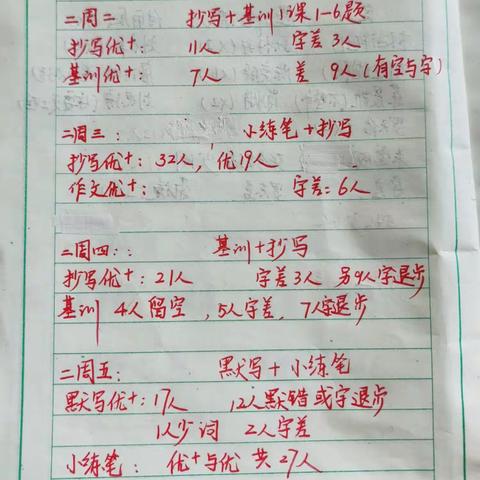 二周二 抄写+基训1课1-6题
抄写优+: 11人 字差3人
基训优+ 7人 差(9人(有空与字)
二周三: 小练笔+抄写
抄写优+: 32人, 优19人
作文优+: 字差:6人
二周四: 基训+抄写
抄写优+:21人 字差3人 另9人字退步
基训 4人留空, 5人字差, 7人字退步
二周五: 默写+小练笔
默写优+:17人 12人默错或字退步
1人少词 2人字差
小练笔: 优+与优 共27人